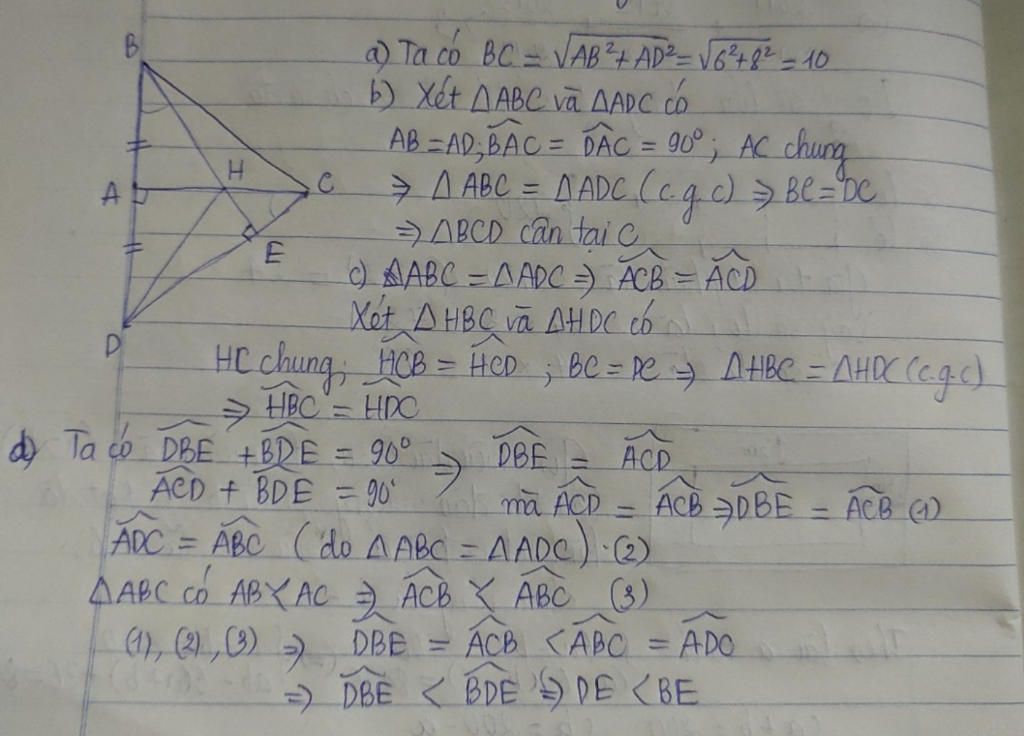 B
a) Ta có BC = √AB²+AD² = √6²+8² = 10
b) Xét ΔABC và ΔADC có
AB = AD; B̂AC = D̂AC = 90°; AC chung
A
H
C
⇒ ΔABC = ΔADC (c.g.c) ⇒ BC = DC
⇒ ΔBCD cân tại C
E
c) ΔABC = ΔADC ⇒ ÂCB = ÂCD
Xét ΔHBC và ΔHDC có
D
HC chung; ĤCB = ĤCD ; BC = DC ⇒ ΔHBC = ΔHDC (c.g.c)
⇒ ĤBC = ĤDC
d) Ta có D̂BE + B̂DE = 90° ⇒ D̂BE = ÂCD
ÂCD + B̂DE = 90° mà ÂCD = ÂCB ⇒ D̂BE = ÂCB (1)
ÂDC = ÂBC (do ΔABC = ΔADC). (2)
ΔABC có AB < AC ⇒ ÂCB < ÂBC (3)
(1), (2), (3) ⇒ D̂BE = ÂCB < ÂBC = ÂDC
⇒ D̂BE < B̂DE ⇒ DE < BE